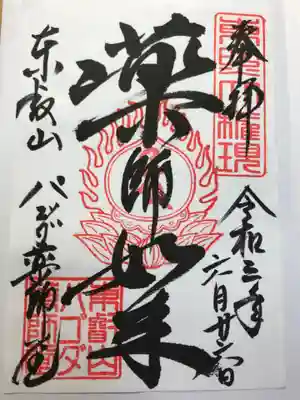 奉拝
令和三年
六月廿六日
薬師如来
東叡山
パゴダ薬師堂
東叡山
パゴダ
薬師堂